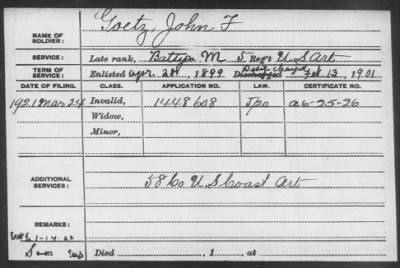 Goetz, John F
NAME OF SOLDIER:
SERVICE: Late rank, Battyo M 5 Regt U S Art
TERM OF SERVICE: Enlisted Apr. 28, 1899 Discharged Feb 13, 1901
DATE OF FILING. CLASS. APPLICATION NO. LAW. CERTIFICATE NO.
1921 Mar 24 Invalid, 1448608 a6-25-26
Widow,
Minor,
ADDITIONAL SERVICES: 58 Co U S Coast Art
REMARKS:
1-14-22
Died , 1 , at